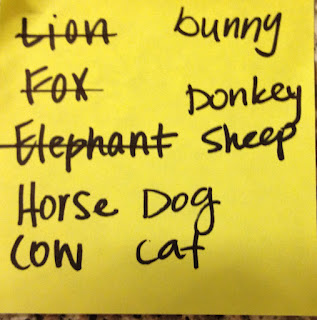 Lion bunny
Fox Donkey
Elephant sheep
Horse Dog
Cow cat